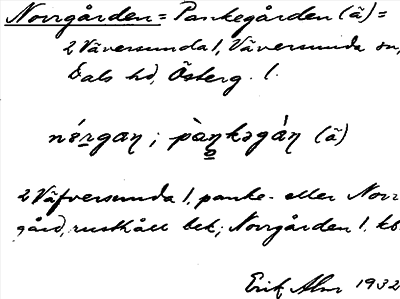 Norrgården = Pankegården (ã) =
2 Väversunda 1, Väversunda sn,
Dals hd, Österg. l.
nórgan; pàŋkəgáṇ (ã)
2 Väfversunda 1, panke- eller Norr
gård, rusthåll bek; Norrgården 1. kb
Erik Alm 1932